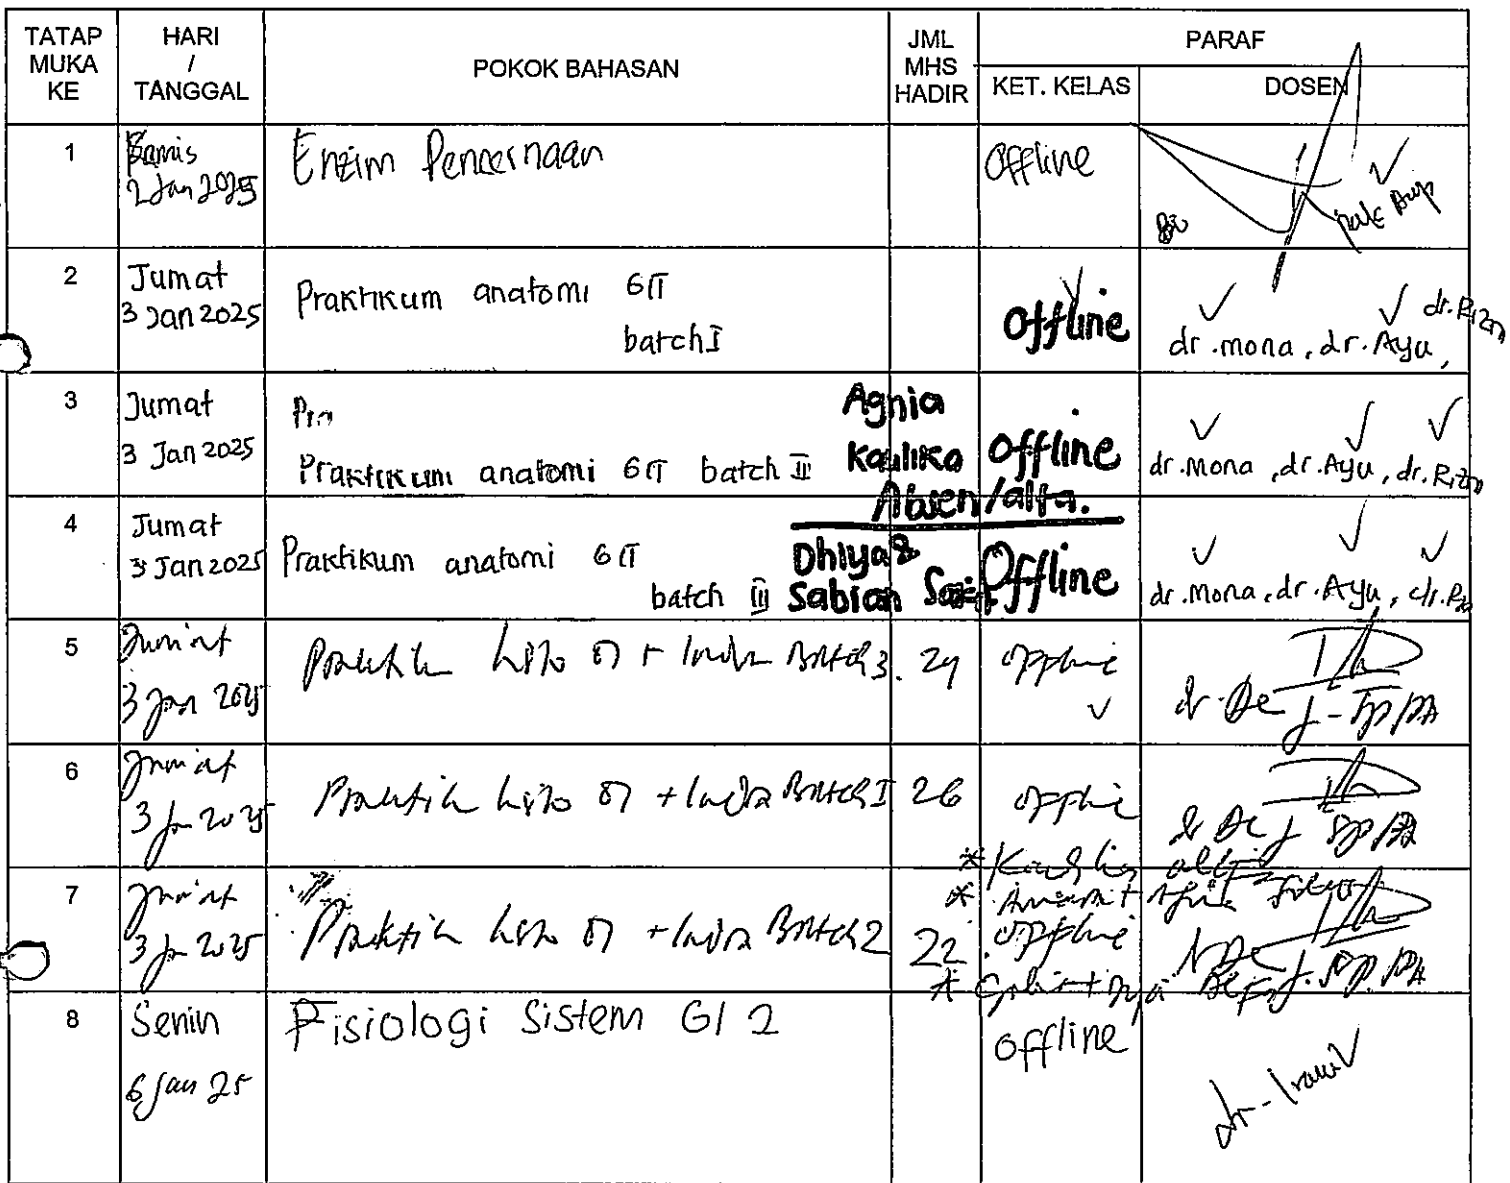 TATAP MUKA KE
HARI / TANGGAL
POKOK BAHASAN
JML MHS HADIR
PARAF
KET. KELAS
DOSEN
1
Kamis
2 Jan 2025
Enzim Pencernaan
Offline
2
Jumat
3 Jan 2025
Praktikum anatomi GIT
batch I
Offline
dr. Mona, dr. Ayu,
3
Jumat
3 Jan 2025
Pra
Praktikum anatomi GIT batch II
Agnia
Kaulika
Absen/alfa.
Offline
dr. Mona, dr. Ayu,
4
Jumat
3 Jan 2025
Praktikum anatomi GIT
batch III
Dhiya &
Sabian
Offline
dr. Mona, dr. Ayu,
5
Jum'at
3 Jan 2025
Praktik histo GI + Indra Batch 3.
24
offline
6
Jum'at
3 Jan 2025
Praktik histo GI + Indra Batch I
26
offline
7
Jum'at
3 Jan 2025
Praktik histo GI + Indra Batch 2
22
offline
8
Senin
6 Jan 25
Fisiologi Sistem GI 2
offline